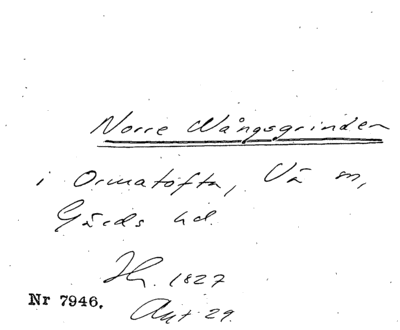 Norre Wångsgrinden
i Ormatofta, Vä sn,
Gärds hd.
Jh. 1827
Nr 7946.
Akt 29.